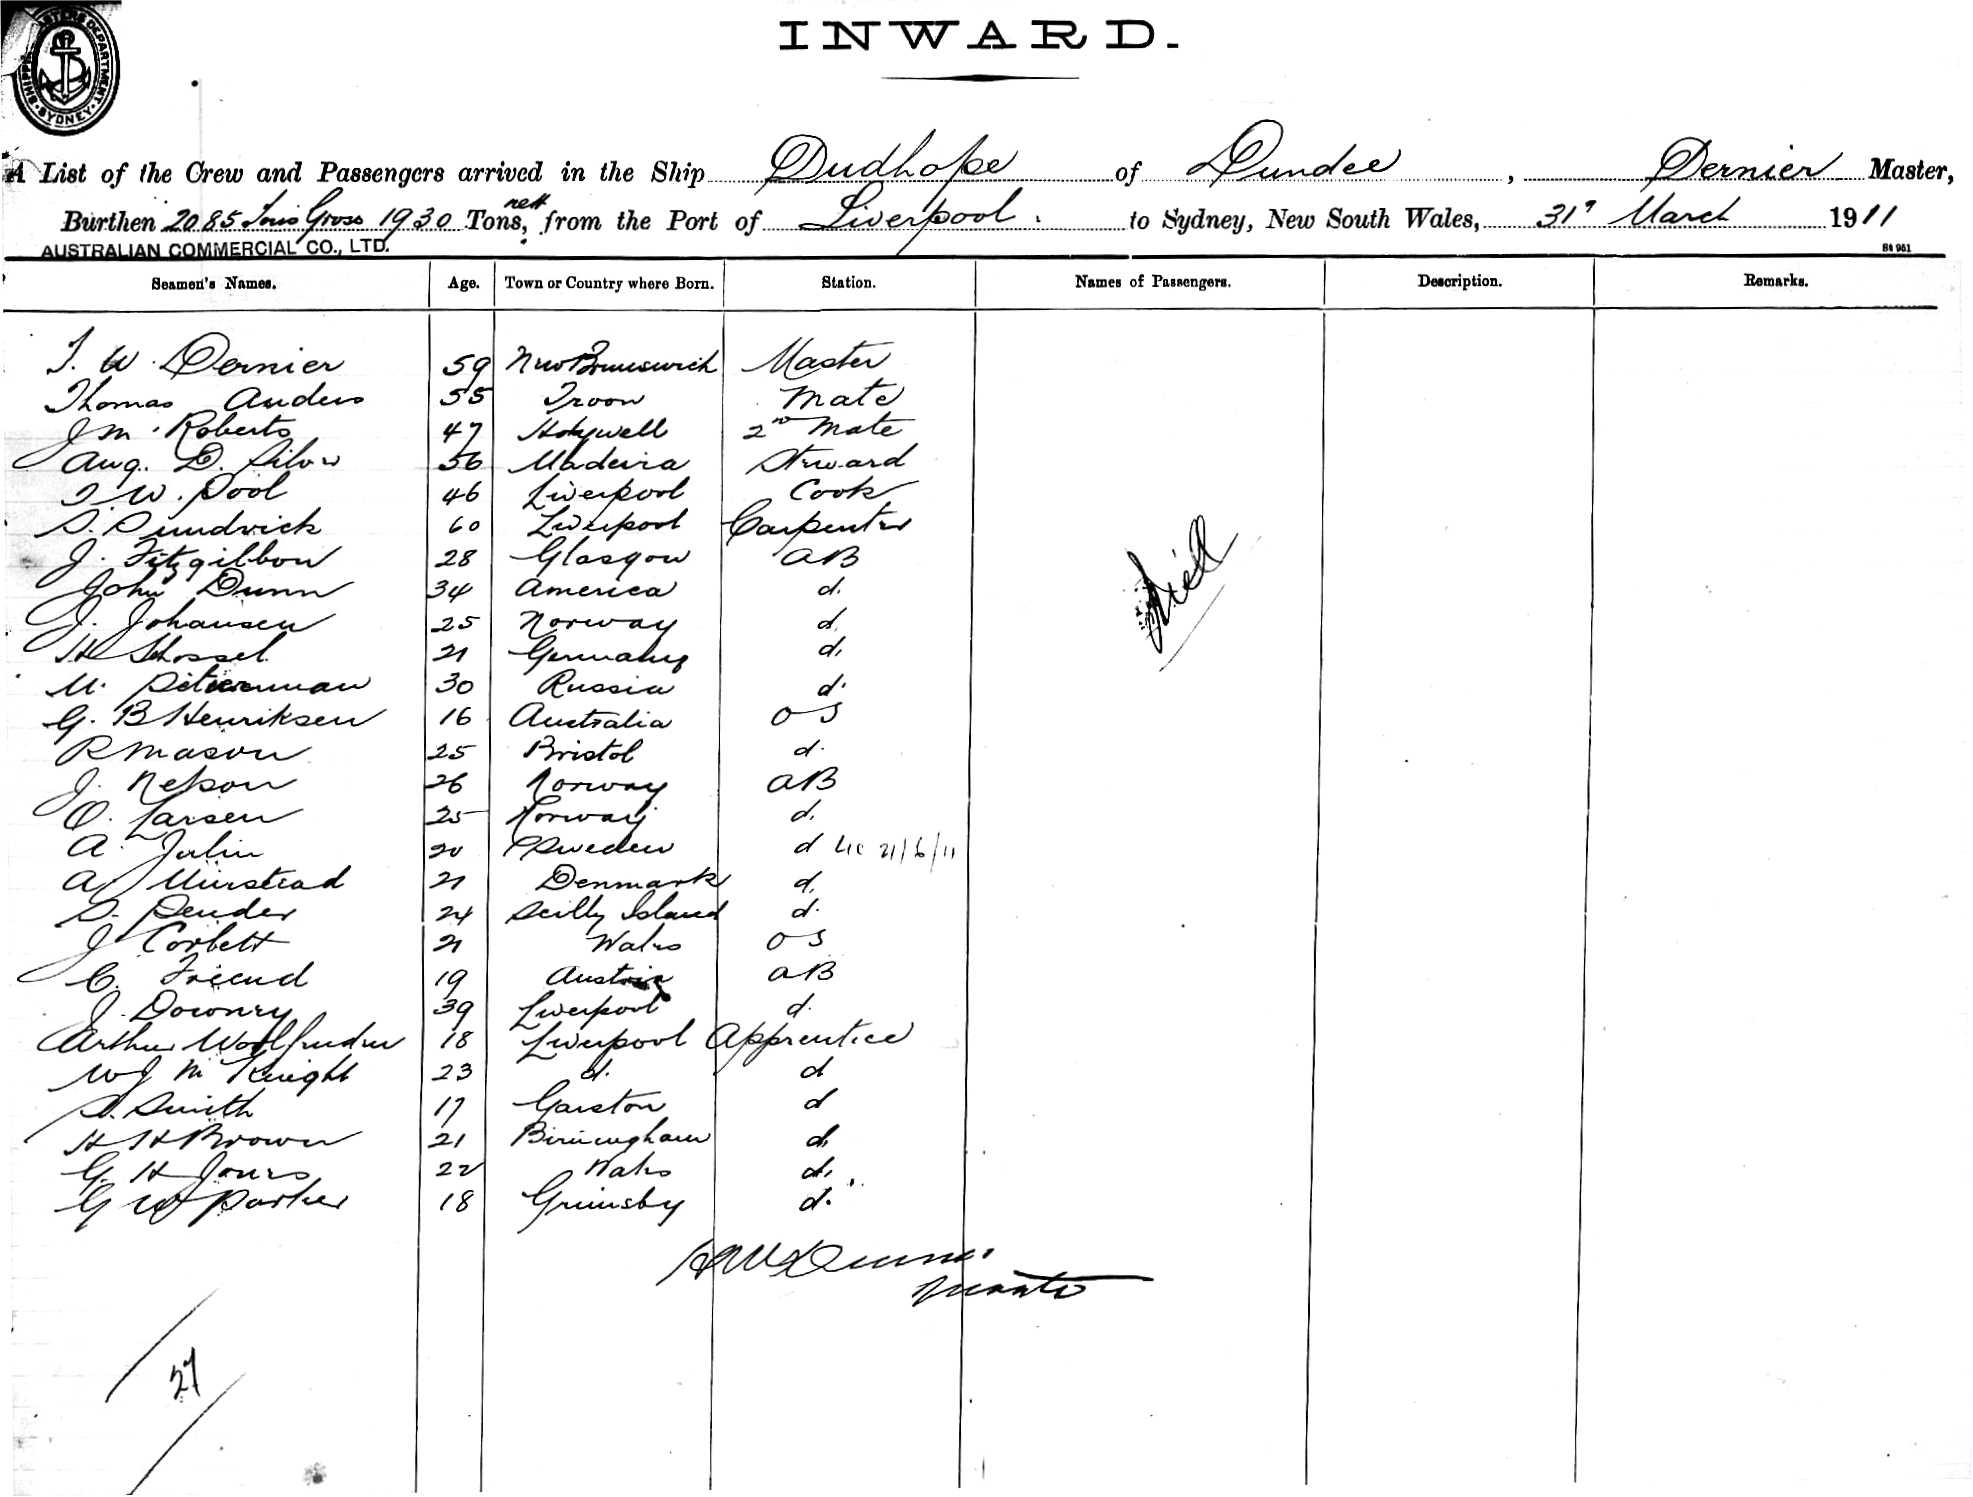 SHIPPING MASTERS DEPARTMENT SYDNEY
INWARD.
A List of the Crew and Passengers arrived in the Ship Dudhope of Dundee, Dernier Master,
Burthen 2085 Tons Gross 1930 Tons, nett from the Port of Liverpool. to Sydney, New South Wales, 31 March 1911
AUSTRALIAN COMMERCIAL CO., LTD. St 961
Seamen's Names. Age. Town or Country where Born. Station. Names of Passengers. Description. Remarks.
W. Dernier 59 New Brunswick Master
Thomas Anders 55 Troon Mate
J M. Roberts 47 Holywell 2nd Mate
Aug. D. Silva 56 Madeira Steward
W. Pool 46 Liverpool Cook
S. 60 Liverpool Carpenter
J. Fitzgibbon 28 Glasgow AB
John Dunn 34 America d.
J. Johansen 25 Norway d.
H 21 Germany d.
M. 30 Russia d.
G. B Henriksen 16 Australia O S
R Mason 25 Bristol d.
J. Nelson 26 Norway AB
O. Larsen 25 Norway d.
A. Julin 20 Sweden d 21/6/11
A. 21 Denmark d.
S. Pender 24 Scilly Island d.
J Corbett 21 Wales O S
C. Friend 19 Austria AB
J. Downey 39 Liverpool d.
Arthur 18 Liverpool Apprentice
W J McKnight 23 d. d
S. Smith 17 Garston d
H H Brown 21 Birmingham d.
G. H Jones 22 Wales d.
G W Parker 18 Grimsby d.
Master
27